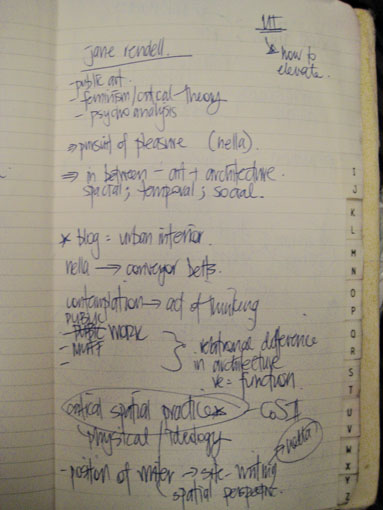 M1
* how to
elevate.
jane rendell.
- public art.
- feminism/critical theory
- psychoanalysis
⇒ pursuit of pleasure (nella).
⇒ in between - art + architecture.
spatial; temporal; social.
* blog = urban interior.
nella → conveyor belts.
contemplation → act of thinking
PUBLIC
WORK
- MUFF
-
relational difference
in architecture
ve = function.
critical spatial practice *
physical / ideology
- position of writer → site-writing
spatial perspective.
I
J
K
L
M
N
O
P
Q
R
S
T
U
V
W
X
Y
Z